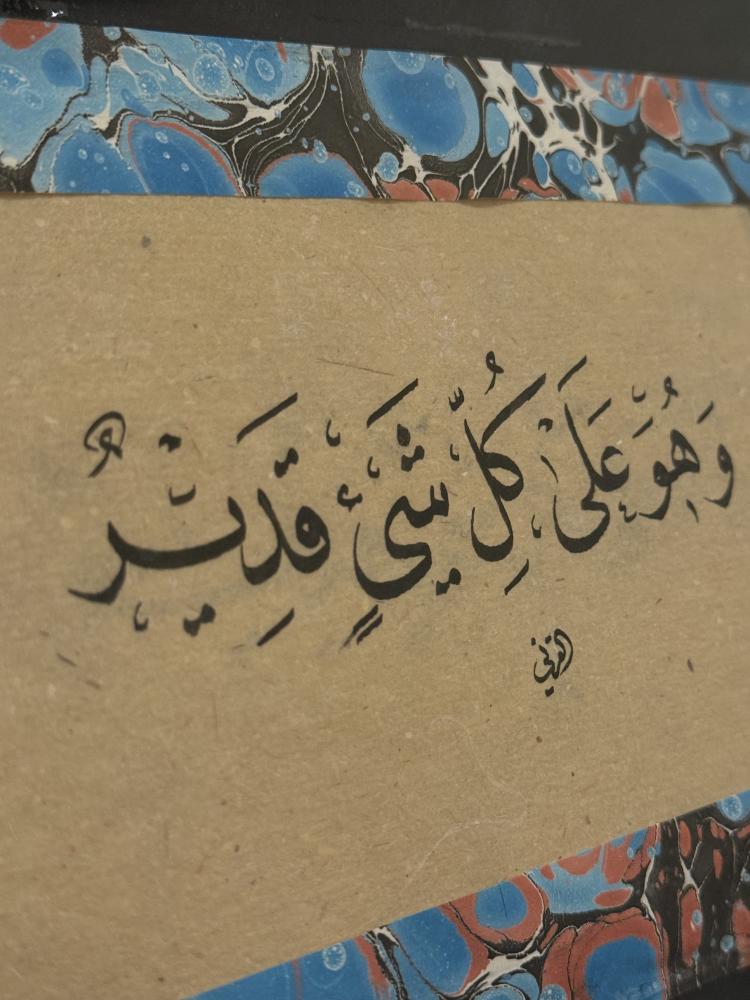 وَهُوَ عَلَىٰ كُلِّ شَيْءٍ قَدِيْرٌ